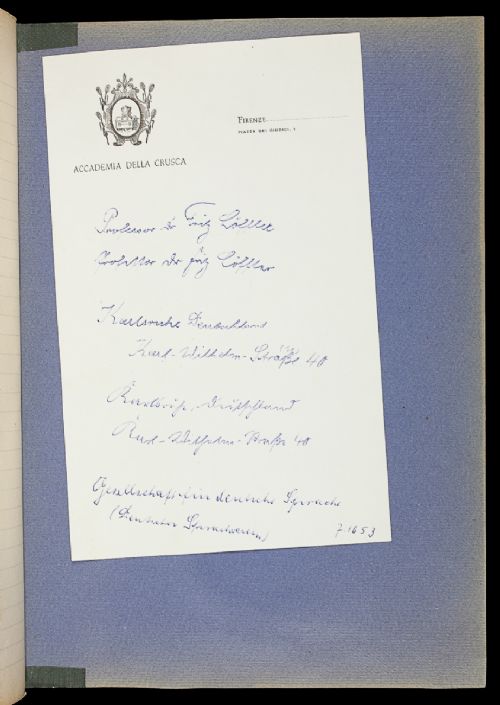 FIRENZE
PIAZZA DEI GIUDICI, 1
ACCADEMIA DELLA CRUSCA
Professor dr Fritz Löffler
Professor dr Fritz Löffler
Karlsruhe Deutschland
Karl-Wilhelm-Straße 40
Karlsruhe, Deutschland
Karl-Wilhelm-Straße 40
Gesellschaft für deutsche Sprache
(Deutscher Sprachverein)